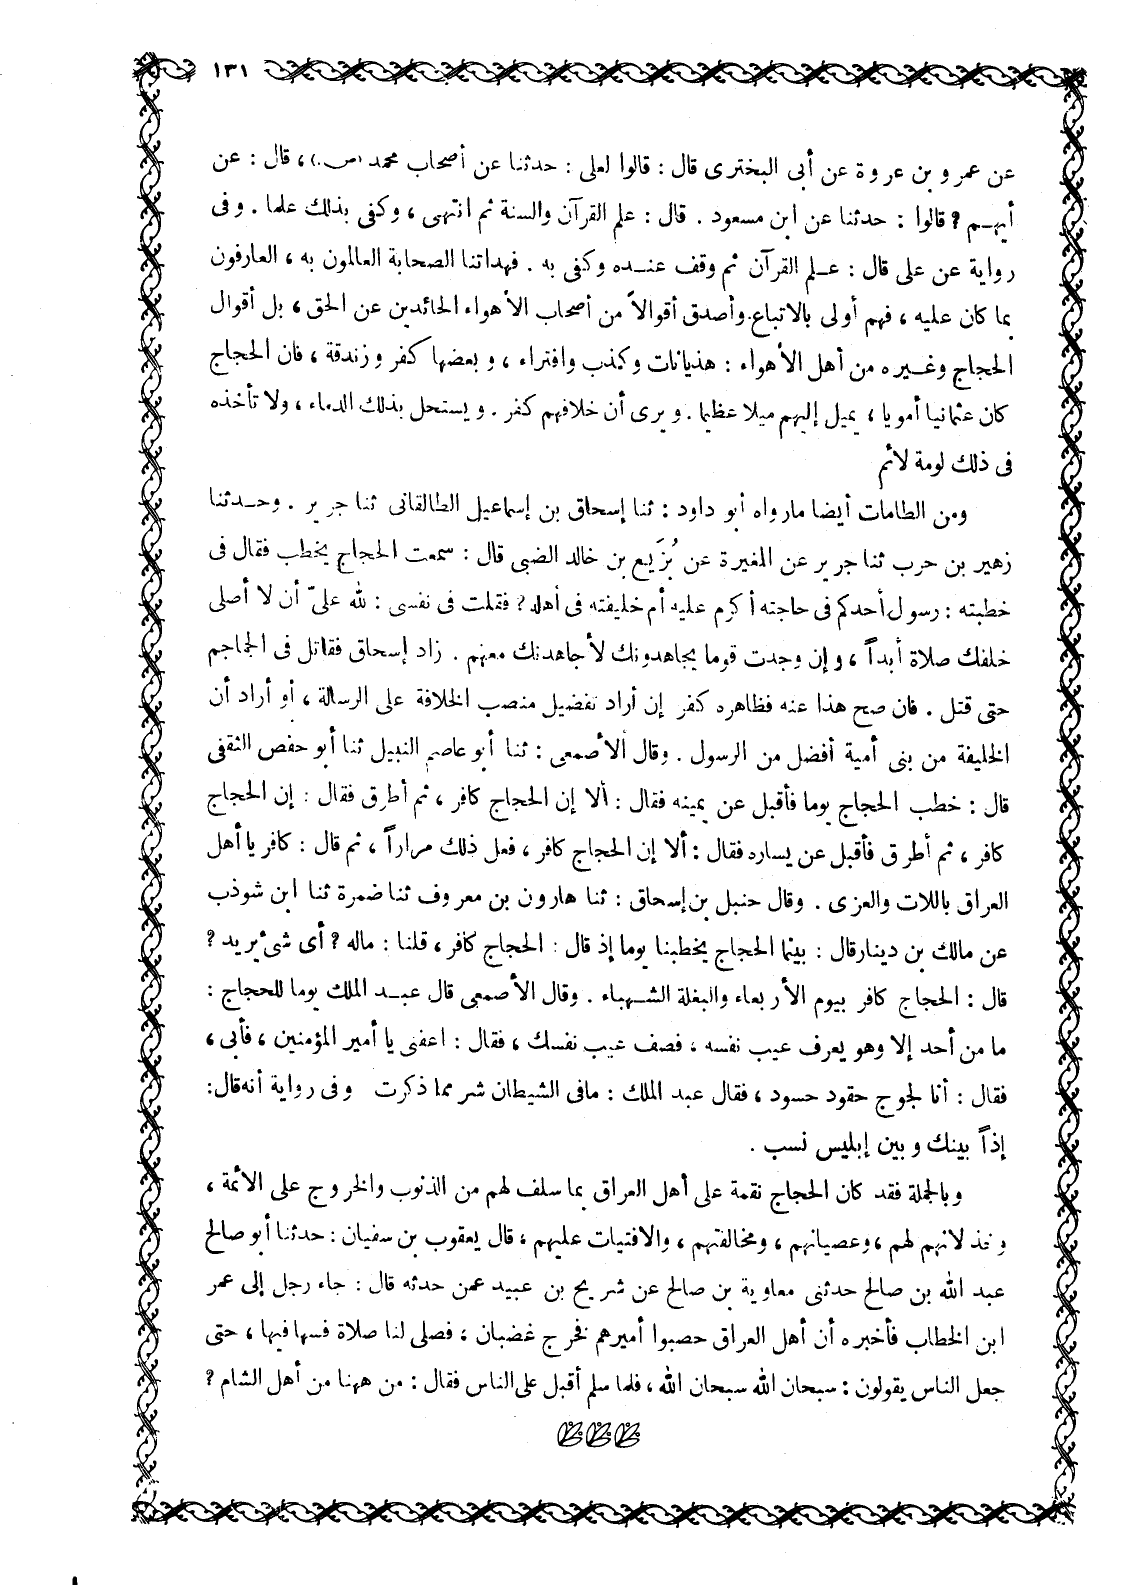 ١٣١
عن عمرو بن عروة عن أبى البخترى قال : قالوا لعلى : حدثنا عن أصحاب محمد (ص.) ، قال : عن
أيهـم ? قالوا : حدثنا عن ابن مسعود . قال : علم القرآن والسنة ثم انتهى ، وكفى بذلك علما . وفى
رواية عن على قال : عـلم القرآن ثم وقف عنـده وكفى به . فهداتنا الصحابة العالمون به ، العارفون
بما كان عليه ، فهم أولى بالاتباع وأصدق أقوالاً من أصحاب الأهواء الحائدين عن الحق ، بل أقوال
الحجاج وغـيره من أهل الأهواء : هذيانات وكذب وافتراء ، وبعضها كفر وزندقة ، فان الحجاج
كان عثمانيا أمويا ، يميل إليهم ميلا عظيما . ويرى أن خلافهم كفر . ويستحل بذلك الدماء ، ولا تأخذه
فى ذلك لومة لائم
ومن الطامات أيضا مارواه أبو داود : ثنا إسحاق بن إسماعيل الطالقانى ثنا جرير . وحـدثنا
زهير بن حرب ثنا جرير عن المغيرة عن بُزَيع بن خالد الضبى قال : سمعت الحجاج يخطب فقال فى
خطبته : رسول أحدكم فى حاجته أكرم عليه أم خليفته فى أهله ? فقلت فى نفسى : لله علىّ أن لا أصلى
خلفك صلاة أبداً ، وإن وجدت قوما يجاهدونك لأجاهدنك معهم . زاد إسحاق فقاتل فى الجماجم
حتى قتل . فان صح هذا عنه فظاهره كفر إن أراد تفضيل منصب الخلافة على الرسالة ، أو أراد أن
الخليفة من بنى أمية أفضل من الرسول . وقال الأصمعى : ثنا أبو عاصم النبيل ثنا أبو حفص الثقفى
قال : خطب الحجاج يوما فأقبل عن يمينه فقال : ألا إن الحجاج كافر ، ثم أطرق فقال : إن الحجاج
كافر ، ثم أطرق فأقبل عن يساره فقال : ألا إن الحجاج كافر ، فعل ذلك مراراً ، ثم قال : كافر يا أهل
العراق باللات والعزى . وقال حنبل بن إسحاق : ثنا هارون بن معروف ثنا ضمرة ثنا ابن شوذب
عن مالك بن دينار قال : بينما الحجاج يخطبنا يوما إذ قال : الحجاج كافر ، قلنا : ماله ? أى شئ يريد ?
قال : الحجاج كافر بيوم الأربعاء والبغلة الشهباء . وقال الأصمعى قال عبـد الملك يوما للحجاج :
ما من أحد إلا وهو يعرف عيب نفسه ، فصف عيب نفسك ، فقال : اعفنى يا أمير المؤمنين ، فأبى ،
فقال : أنا لجوج حقود حسود ، فقال عبد الملك : مافى الشيطان شر مما ذكرت وفى رواية أنه قال :
إذاً بينك وبين إبليس نسب .
وبالجملة فقد كان الحجاج نقمة على أهل العراق بما سلف لهم من الذنوب والخروج على الائمة ،
وخذلانهم لهم ، وعصيانهم ، ومخالفتهم ، والافتيات عليهم ، قال يعقوب بن سفيان : حدثنا أبو صالح
عبد الله بن صالح حدثنى معاوية بن صالح عن شريح بن عبيد عمن حدثه قال : جاء رجل إلى عمر
ابن الخطاب فأخبره أن أهل العراق حصبوا أميرهم فخرج غضبان ، فصلى لنا صلاة فسها فيها ، حتى
جعل الناس يقولون : سبحان الله سبحان الله ، فلما سلم أقبل على الناس فقال : من ههنا من أهل الشام ?